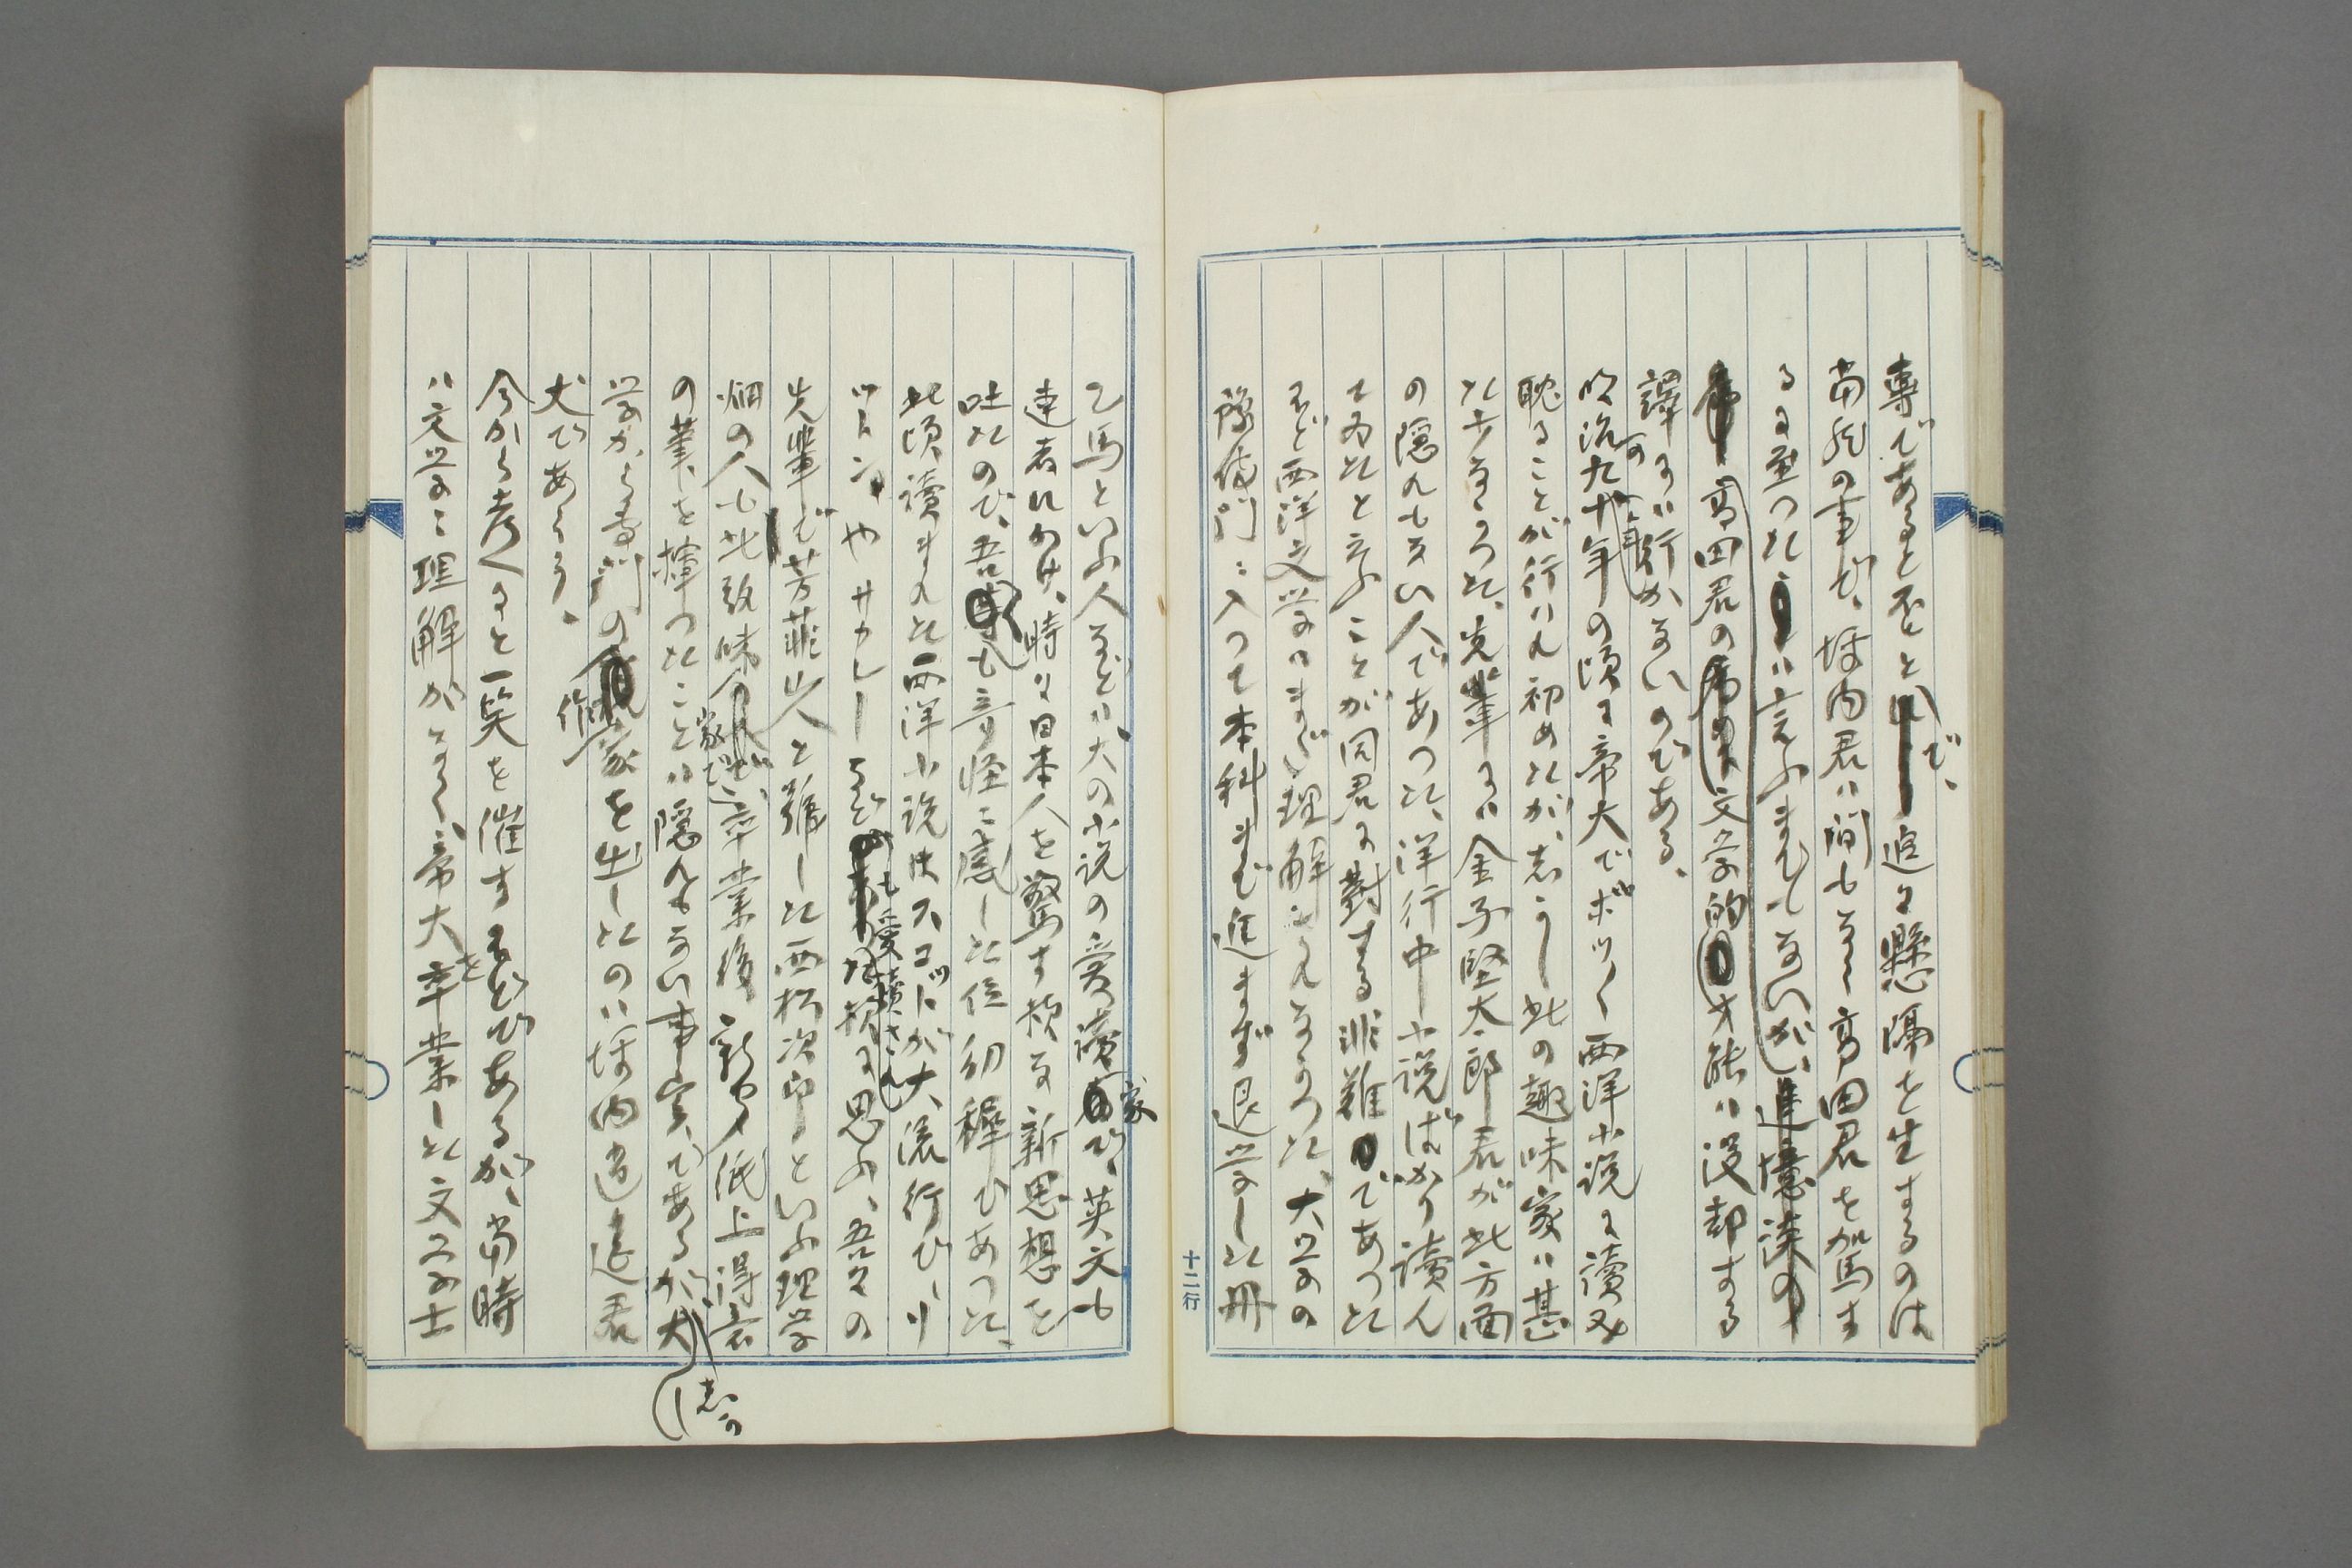 専であると否とで、追々懸隔を生するのは
当然の事で、坪内君ハ間もなく高田君を凌駕す
るに至つたハ言ふまでもないが、
高田君の文学的才能ハ没却する
譯にハ行かないのである、
明治九十年の頃に帝大でボツ〱西洋小説を讀み
耽ることが行ハれ初めたが、志かし此の趣味家ハ甚
た少なかつた、先輩にハ金子堅太郎君が此方面
の隠れもない人であつた、洋行中小説ばかり讀ん
て居たと言ふことが同君に對する非難であつた
ほど西洋文学のまだ理解されなかつた、大学の
豫備門に入つて本科まで進まず退学した丹
乙馬といふ人などハ、大の小説の愛讀家で、英文も
達者にかけ、時々日本人を驚す様な新思想を
吐たので、吾々も奇怪に感した位幼稚であつた、
此頃讀まれた西洋小説ハスコットが大流行で、リ
ットンやサカレーなども愛讀された様に思ふ、吾々の
先輩で芳菲山人と號した西松次郎といふ理学
畑の人も此趣味家で、卒業後新聞紙上得意
の筆を揮つたことハ隠れもない事実であるが、志かし
学から専門の作家を出したのハ坪内逍遥君
丈であらう、
今から考へると一笑を催すほどであるが、当時
ハ文学に理解がなく、帝大を卒業した文学士
十二行